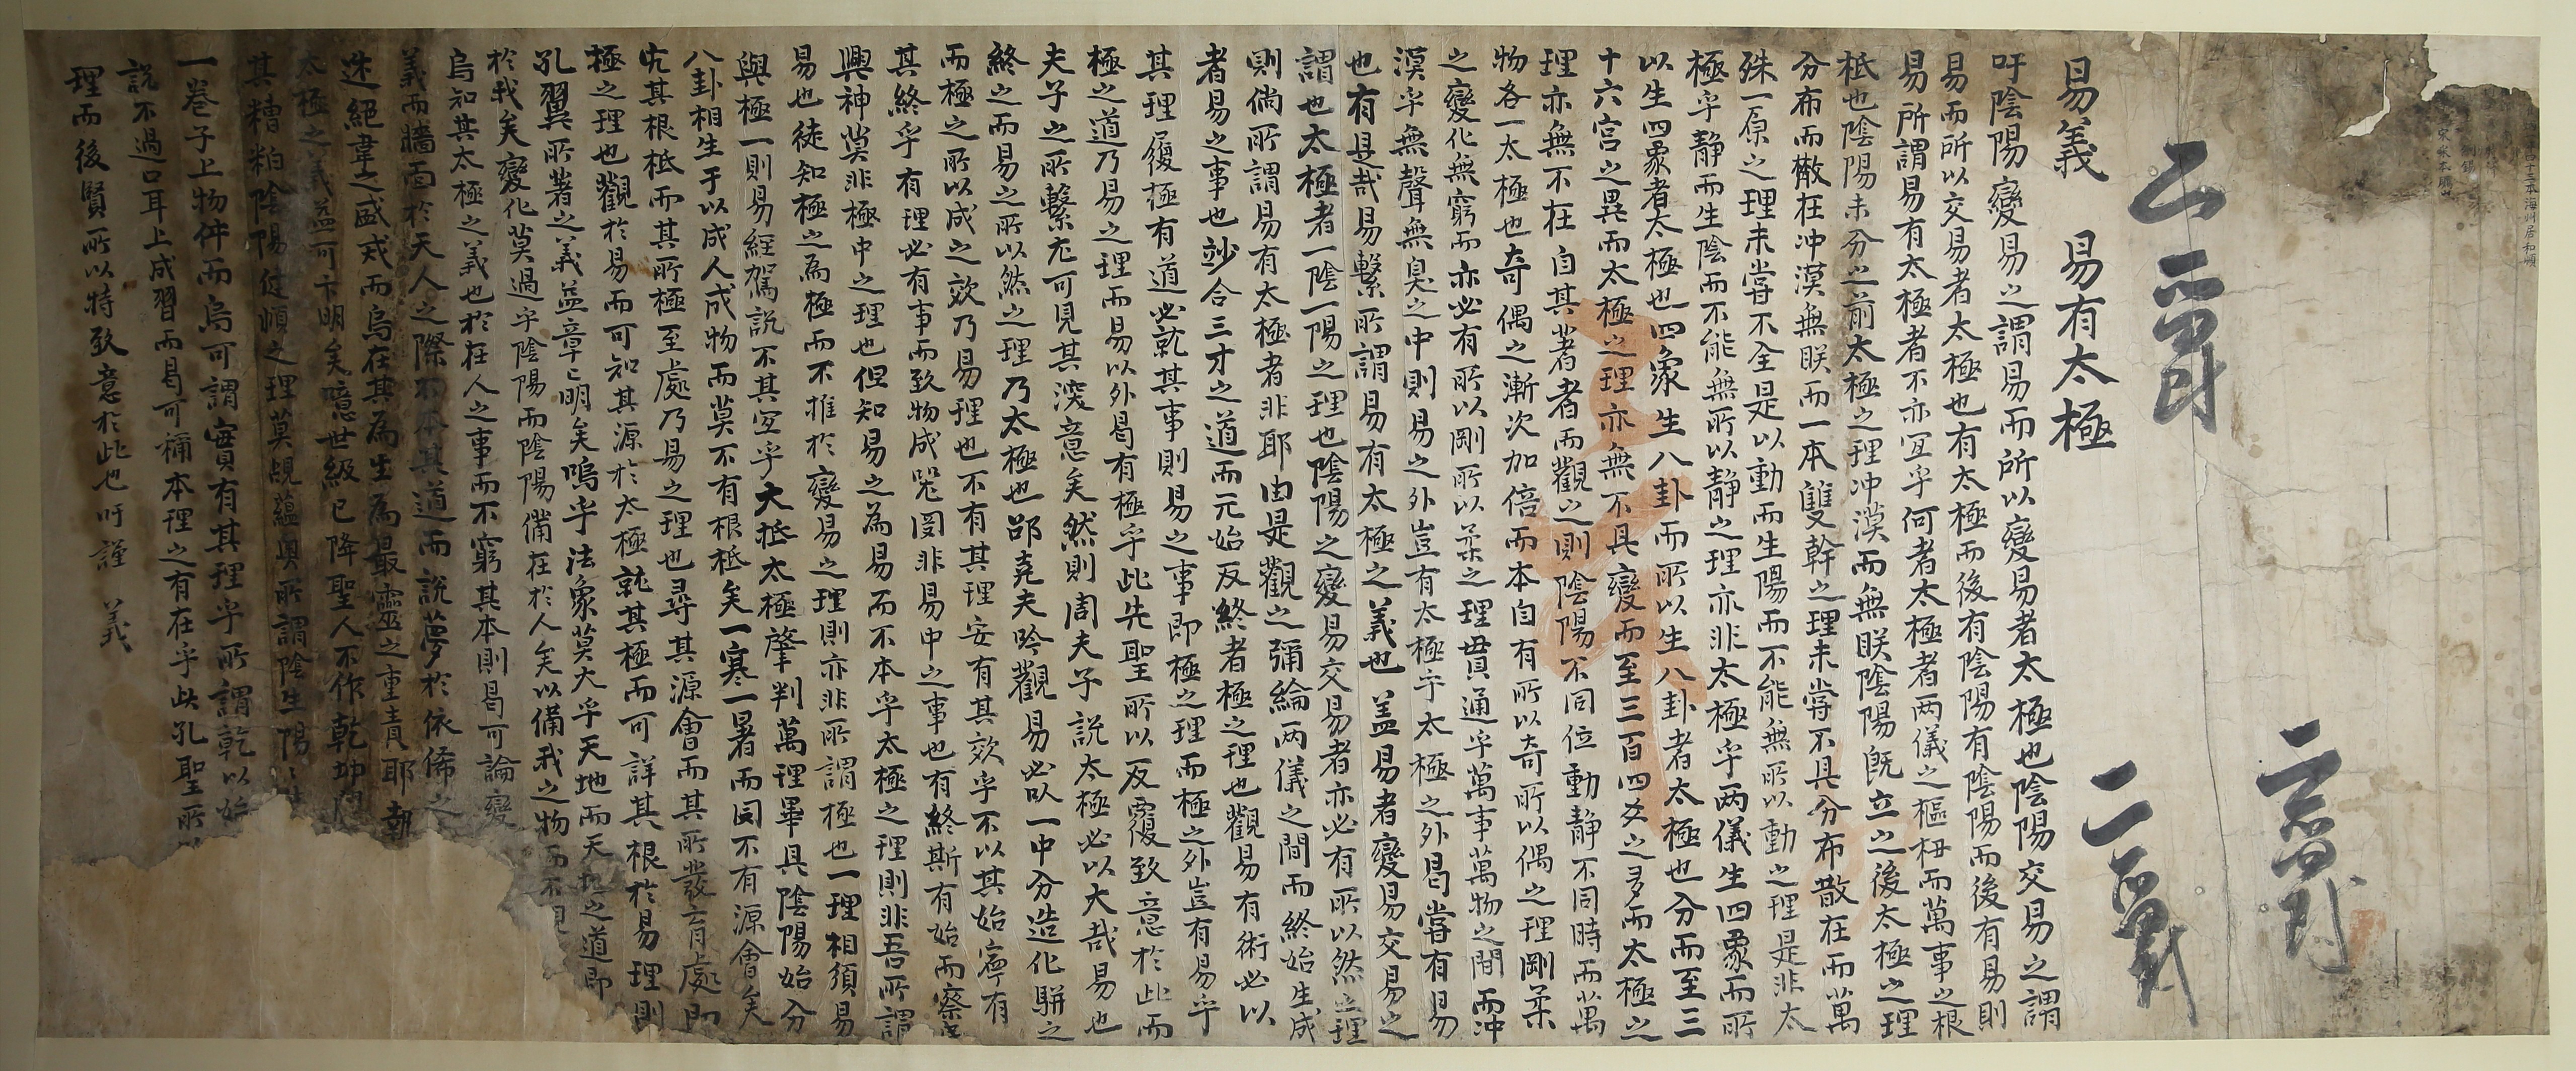 易義 易有太極
吁陰陽變易之謂易而所以變易者太極也陰陽交易之謂
易而所以交易者太極也有太極而後有陰陽有陰陽而後有易則
易所謂易有太極者不亦冝乎何者太極者两儀之樞柤而萬事之根
柢也陰陽未分之前太極之理冲漠而無眹陰陽旣立之後太極之理
分布而散在冲漠無眹而一本雙幹之理未甞不具分布散在而萬
殊一原之理未甞不全是以動而生陽而不能無所以動之理是非太
極乎静而生陰而不能無所以静之理亦非太極乎两儀生四象而所
以生四象者太極也四象生八卦而所以生八卦者太極也分而至三
十六宫之異而太極之理亦無不具變而至三百四爻之多而太極之
理亦無不在自其著者而觀之則陰陽不同位動静不同時而萬
物各一太極也奇偶之漸次加倍而本自有所以奇所以偶之理剛柔
之變化無窮而亦必有所以剛所以柔之理貫通乎萬事萬物之間而冲
漠乎無聲無臭之中則易之外豈有太極乎太極之外曷甞有易
也有是哉易繫所謂易有太極之義也盖易者變易交易之
謂也太極者一陰一陽之理也陰陽之變易交易者亦必有所以然之理
則倘所謂易有太極者非耶由是觀之彌綸两儀之間而終始生成
者易之事也妙合三才之道而元始反終者極之理也觀易有術必以
其理履極有道必就其事則易之事即極之理而極之外豈有易乎
極之道乃易之理而易以外曷有極乎此先聖所以反覆致意於此而
夫子之所繫尤可見其深意矣然則周夫子說太極必以大哉易也
終之而易之所以然之理乃太極也邵堯夫吟觀易必以一中分造化駢之
而極之所以成之效乃易理也不有其理安有其效乎不以其始寧有
其終乎有理必有事而致物成咒罔非易中之事也有終斯有始而察
興神莫非極中之理也但知易之為易而不本乎太極之理則非吾所謂
易也徒知極之為極而不推於變易之理則亦非所謂極也一理相須易
與極一則易經駕說不其冝乎大抵太極肇判萬理畢具陰陽始分
八卦相生于以成人成物而莫不有根柢矣一寒一暑而罔不有源會矣
究其根柢而其所極至處乃易之理也尋其源會而其所發育處即
極之理也觀於易而可知其源於太極就其極而可詳其根於易理則
孔翼所著之義益章〻明矣嗚乎法象莫大乎天地而天地之道即
於我矣變化莫過乎陰陽而陰陽備在於人矣以備我之物而不
烏知其太極之義也於在人之事而不窮其本則曷可論變
義而牆面於天人之際不本其道而說夢於依俙之
迷絕韋之盛戎而烏在其為生為最靈之重責耶
太極之義益可卞明矣噫世級已降聖人不作乾坤
其糟粕陰陽使傾之理莫覗蘊奥所謂陰生陽
一卷子上物件而烏可謂實有其理乎所謂乾以始
說不過口耳上成習而曷可稱本理之有在乎此孔聖所
理而後賢所以特致意於此也吁謹 義